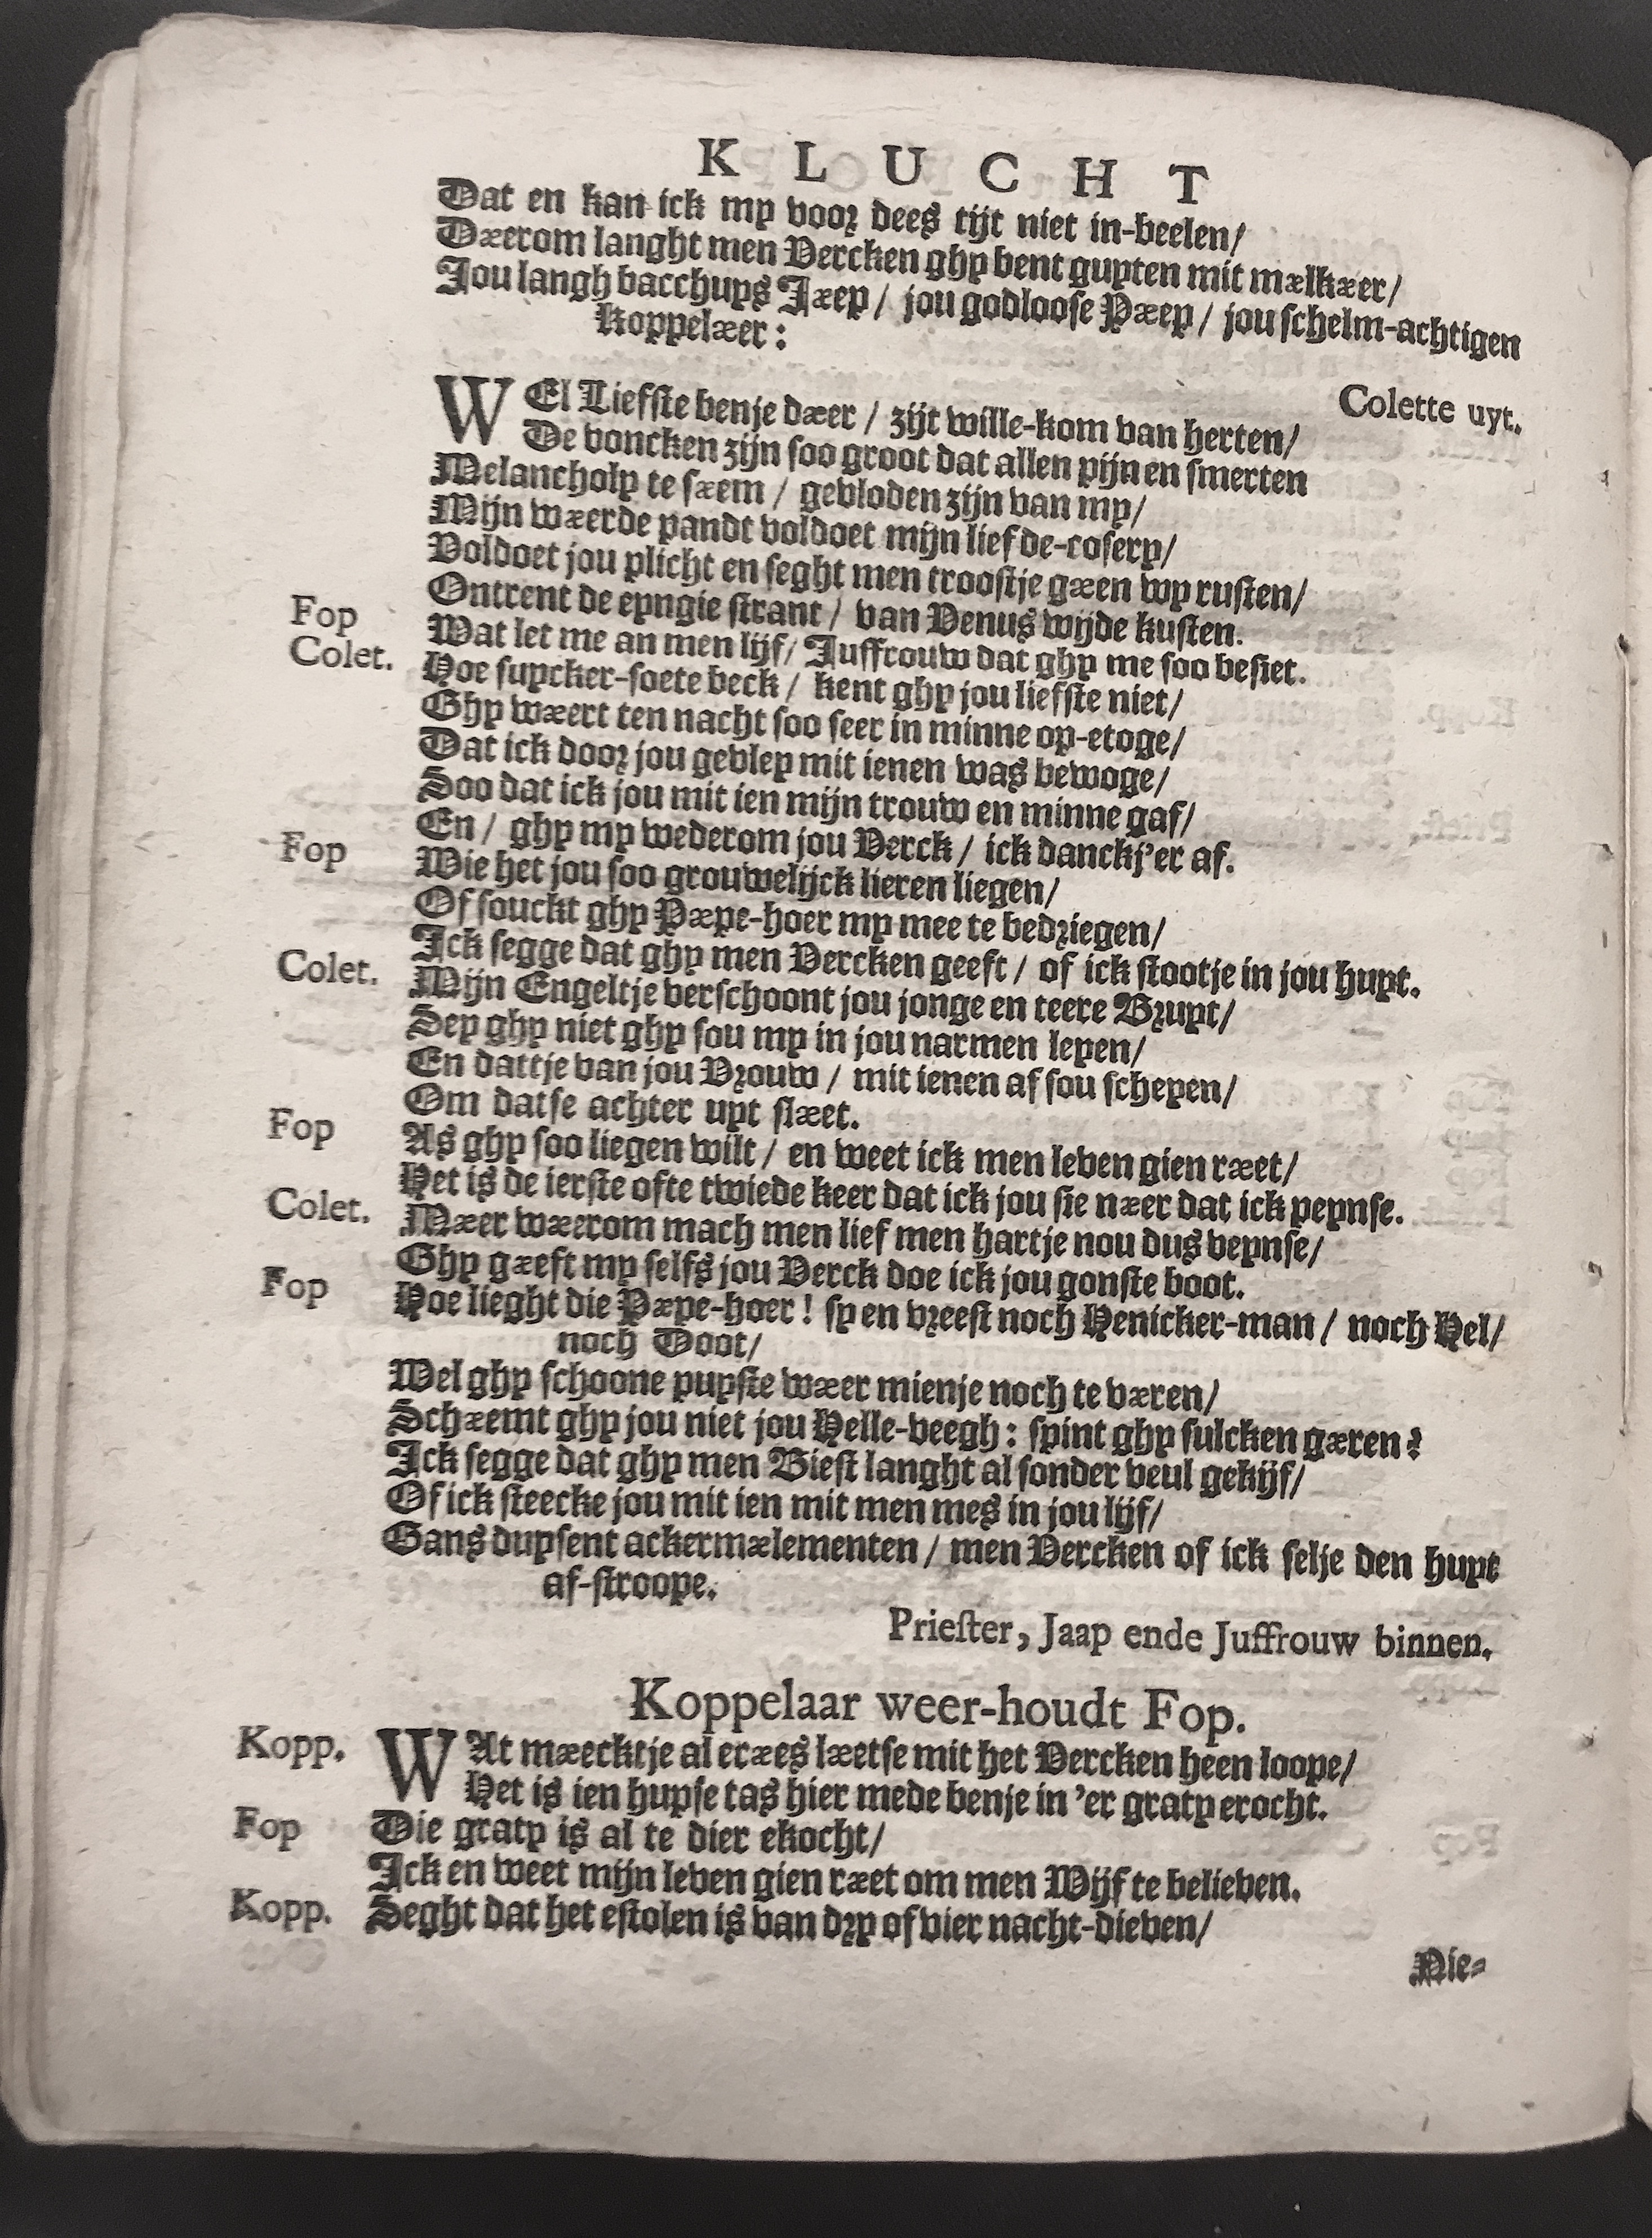 KLUCHT
Dat en kan ick my voor dees tijt niet in-beelen/
Dærom langht men Vercken ghy bent guyten mit mælkær/
Jou langh bacchuys Jæp/ jou godloose Pæp/ jou schelm-achtigen
Koppelær:
Colette uyt.
WEl Liefste benje dær/ zijt wille-kom van herten/
De voncken zijn soo groot dat allen pijn en smerten
Melancholy te sæm/ gevloden zijn van my/
Mijn wærde pandt voldoet mijn liefde-rosery/
Voldoet jou plicht en seght men troostje gæn wy rusten/
Ontrent de eyngie strant/ van Venus wijde kusten.
Fop Wat let me an men lijf/ Juffrouw dat ghy me soo besiet.
Colet. Hoe suycker-soete beck/ kent ghy jou liefste niet/
Ghy wært ten nacht soo seer in minne op-etoge/
Dat ick door jou gevley mit ienen was bewoge/
Soo dat ick jou mit ien mijn trouw en minne gaf/
En/ ghy my wederom jou Verck/ ick danckj'er af.
Fop Wie het jou soo grouwelijck lieren liegen/
Of souckt ghy Pæpe-hoer my mee te bedriegen/
Ick segge dat ghy men Vercken geeft/ of ick stootje in jou huyt.
Colet. Mijn Engeltje verschoont jou jonge en teere Bruyt/
Sey ghy niet ghy sou my in jou narmen leyen/
En dattje van jou Vrouw/ mit ienen af sou scheyen/
Om datse achter uyt slæt.
Fop As ghy soo liegen wilt/ en weet ick men leven gien ræt/
Het is de ierste ofte twiede keer dat ick jou sie nær dat ick peynse.
Colet. Mær wærom mach men lief men hartje nou dus veynse/
Ghy gæft my selfs jou Verck doe ick jou gonste boot.
Fop Hoe lieght die Pæpe-hoer! sy en vreest noch Henicker-man/ noch Hel/
noch Doot/
Wel ghy schoone puyste wær mienje noch te væren/
Schæmt ghy jou niet jou Helle-veegh: spint ghy sulcken gæren?
Ick segge dat ghy men Biest langht al sonder veul gekijf/
Of ick steecke jou mit ien mit men mes in jou lijf/
Gans duysent ackermælementen/ men Vercken of ick selje den huyt
af-stroope.
Priester, Jaap ende Juffrouw binnen.
Koppelaar weer-houdt Fop.
Kopp. WAt mæcktje al eræs lætse mit het Vercken heen loope/
Het is ien huyse tas hier mede benje in 'er graty erocht.
Fop Die graty is al te dier ekocht/
Ick en weet mijn leven gien ræt om men Wijf te belieben.
Kopp. Seght dat het estolen is van dry of vier nacht-dieven/
Nie-